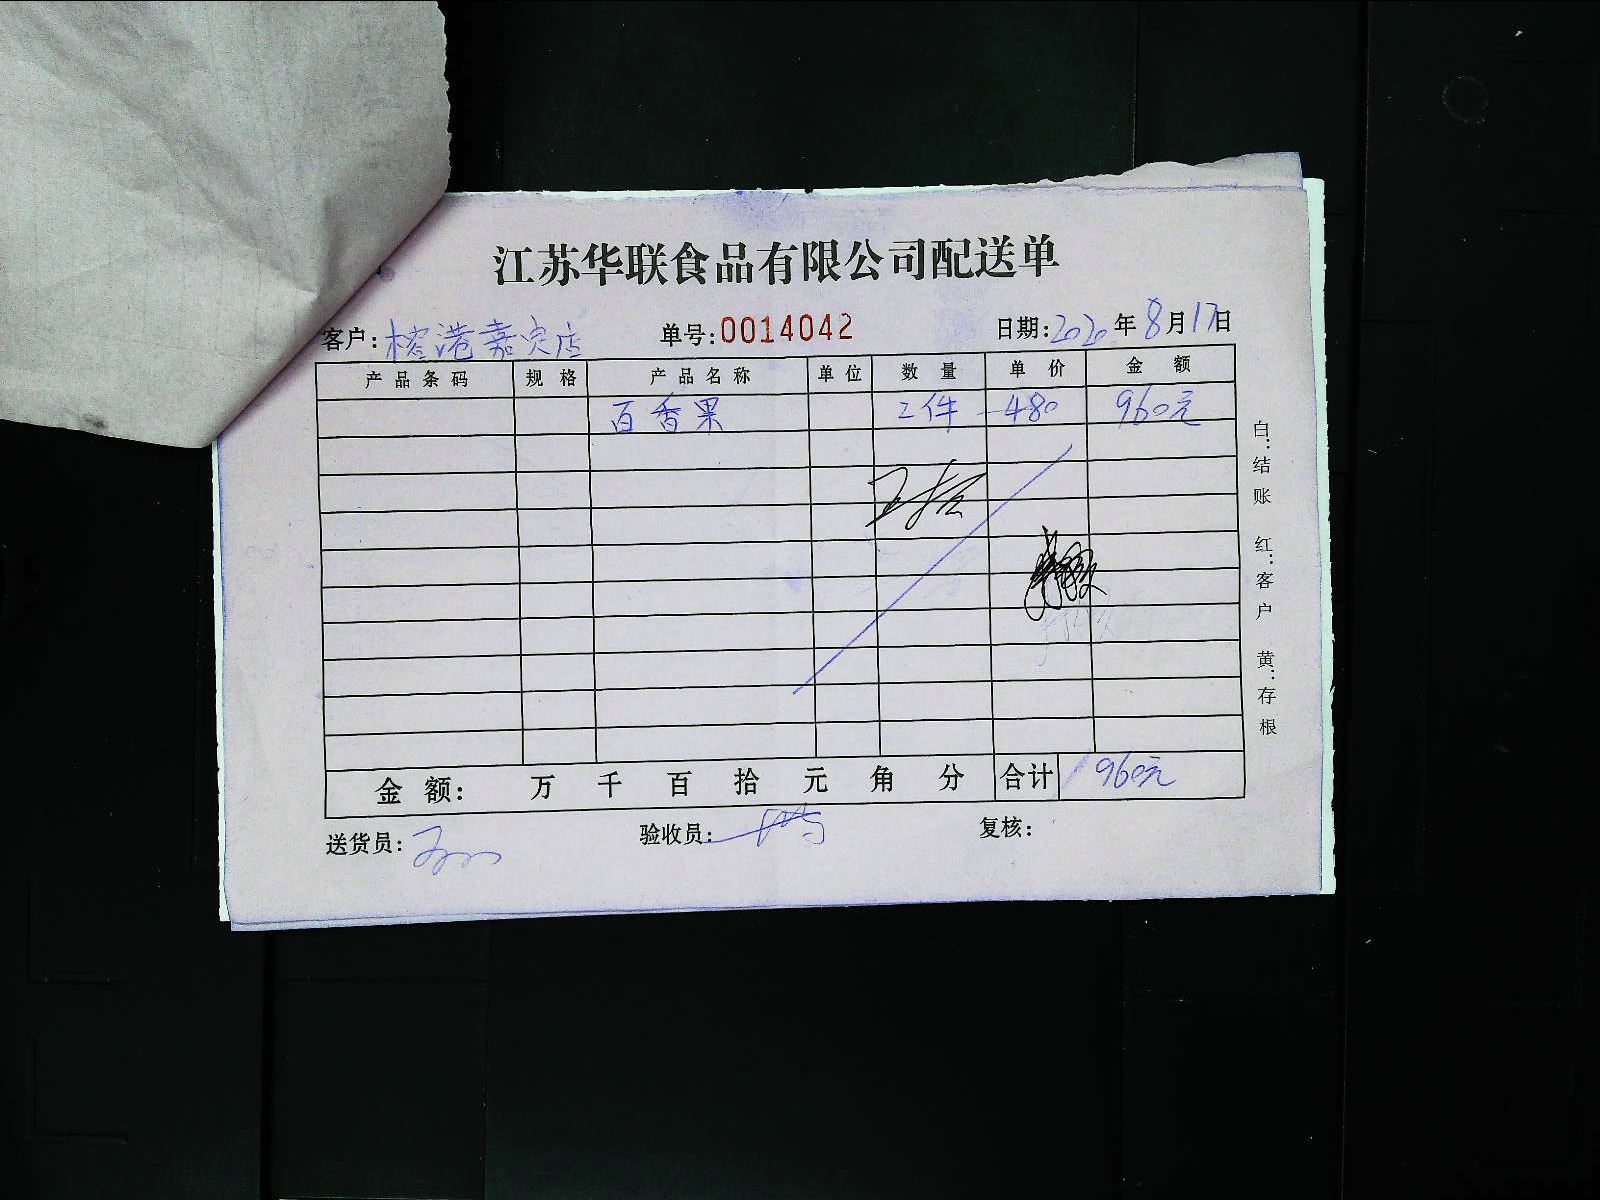 江苏华联食品有限公司配送单
客户: 榕港嘉定店 单号:0014042 日期:2020年8月17日
产品条码 规格 产品名称 单位 数量 单价 金额
百香果 二件 480 960元
金额: 万 千 百 拾 元 角 分 合计 960元
送货员: 验收员: 复核:
白:结账 红:客户 黄:存根